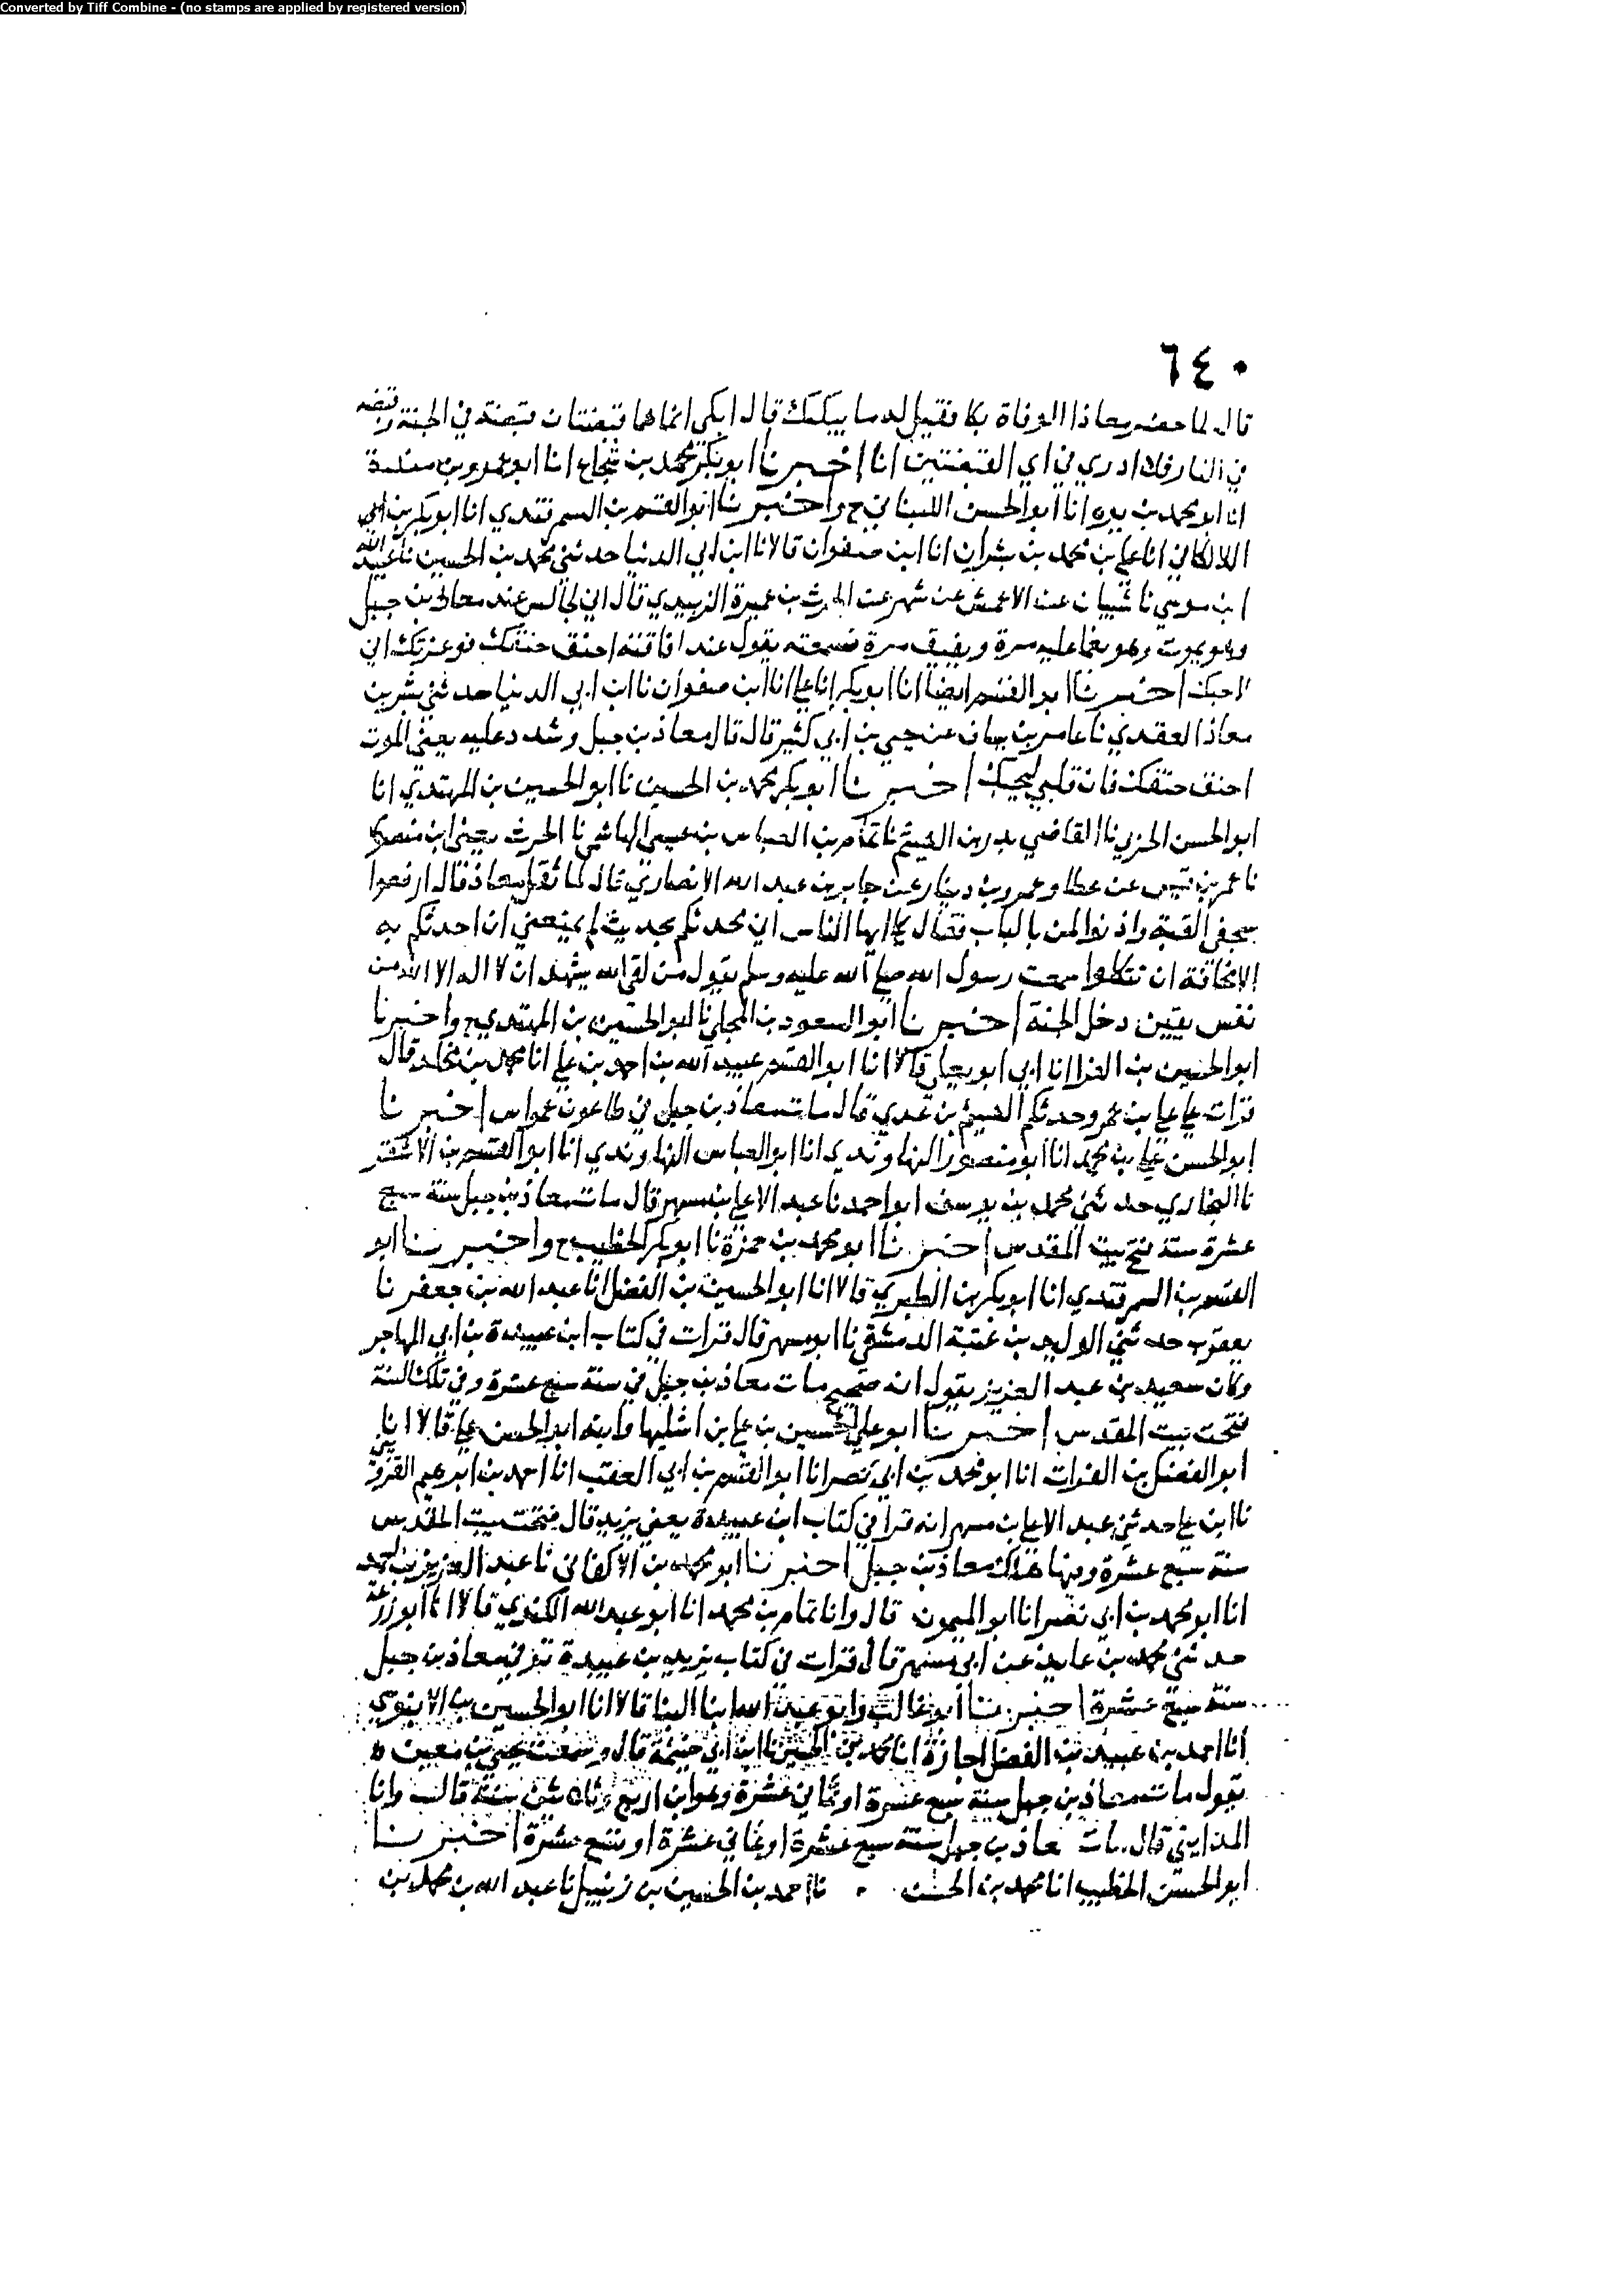 Converted by Tiff Combine - (no stamps are applied by registered version)
٦٤٠
قال لما حضر معاذا الوفاة بكا فقيل له ما يبكيك قال ابكي انما هما قبضتان قبضة في الجنة وقبضه
في النار فلا ادري في اي القبضتين انا اخبرنا ابو بكر محمد بن شجاع انا ابو عمرو بن مندة
انا ابو محمد بن يوه انا ابو الحسن اللبناني ح واخبرنا ابو القسم بن السمرقندي انا ابو بكر بن
اللالكاني انا علي بن محمد بن بشران انا ابن صفوان قالا نا ابن ابي الدنيا حدثني محمد بن الحسين نا عبيد الله
ابن موسي نا شيبان عن الاعمش عن شهر عن الحرث بن عميرة الزبيدي قال اني لجالس عند معاذ بن جبل
وهو يموت وهو يغما عليه مرة ويفيق مرة فسمعته يقول عند افاقته اخنق خنقك فوعزتك اني
لاحبك اخبرنا ابو القسم ايضا انا ابو بكر انا علي انا ابن صفوان نا ابن ابي الدنيا حدثني بشر بن
معاذ العقدي نا عامر بن عن يحيي بن ابي كثير قال قال معاذ بن جبل وشدد عليه يعني الموت
اخنق خنقك فان قلبي يحبك اخبرنا ابو بكر محمد بن الحسين نا ابو الحسين بن المهتدي انا
ابو الحسن الحربي نا القاضي بدر بن الهيثم نا تمام بن العباس بن عيسي الهاشمي نا الحرث يعني ابن منصور
نا عمر بن قيس عن عطا وعمرو بن دينار عن جابر بن عبد الله الانصاري قال لما ثقل معاذ قال ارفعوا
سجفي القبة واذنوا لمن بالباب فقال يا ايها الناس اني محدثكم بحديث لم يمنعني ان احدثكم به
الا مخافة ان تتكلوا سمعت رسول الله صلي الله عليه وسلم يقول من لقي الله يشهد ان لا اله الا الله من
نفس يقين دخل الجنة اخبرنا ابو السعود بن المجلي نا ابو الحسين بن المهتدي ح واخبرنا
ابو الحسين بن الفرا انا ابي ابو يعلي قالا انا ابو القسم عبيد الله بن احمد بن علي انا محمد بن مخلد قال
قرات علي علي بن عمرو حدثكم الهيثم بن عدي قال مات معاذ بن جبل في طاعون عمواس اخبرنا
ابو الحسن علي بن محمد انا ابو منصور النهاوندي انا ابو العباس النهاوندي انا ابو القسم بن الاشقر
نا البخاري حدثني محمد بن يوسف ابو احمد نا عبد الاعلي بن مسهر قال مات معاذ بن جبل سنة سبع
عشرة سنة فتح بيت المقدس اخبرنا ابو محمد بن حمزة نا ابو بكر الخطيب ح واخبرنا ابو
القسم بن السمرقندي انا ابو بكر بن الطبري قالا انا ابو الحسين بن الفضل انا عبد الله بن جعفر نا
يعقوب حدثني الوليد بن عتبة الدمشقي نا ابو مسهر قال قرات في كتاب ابن عبيدة بن ابي المهاجر
وكان سعيد بن عبد العزيز يقول انه صحيح مات معاذ بن جبل في سنة سبع عشرة وفي تلك السنة
فتحت بيت المقدس اخبرنا ابو علي الحسين بن علي بن اشليها وابنه ابو الحسن علي قالا انا
ابو الفضل بن الفرات انا ابو محمد بن ابي نصر انا ابو القسم بن ابي العقب انا احمد بن ابرهيم القزويني
نا ابن حدثني عبد الاعلي بن مسهر انه قرا في كتاب ابن عبيدة يعني يزيد قال فتحت بيت المقدس
سنة سبع عشرة وفيها هلك معاذ بن جبل اخبرنا ابو محمد بن الاكفاني نا عبد العزيز بن احمد
انا ابو محمد بن ابي نصر انا ابو الميمون قال وانا تمام بن محمد انا ابو عبد الله الكندي قالا انا ابو زرعة
حدثني محمد بن عايذ عن ابي مسهر قال قرات في كتاب يزيد بن عبيدة توفي معاذ بن جبل
سنة سبع عشرة اخبرنا ابو غالب وابو عبد الله ابنا البنا قالا انا ابو الحسين بن الابنوسي
انا احمد بن عبيد بن الفضل اجازة انا محمد بن الحسين نا ابن ابي خيثمة قال وسمعت يحيي بن معين
يقول مات معاذ بن جبل سنة سبع عشرة او ثماني عشرة وهو ابن اربع وثلاثين سنة قال وانا
المدايني قال مات معاذ بن جبل سنة سبع عشرة او ثماني عشرة او تسع عشرة اخبرنا
ابو الحسن الخطيب انا محمد بن الحسن نا احمد بن الحسين بن زنبيل نا عبد الله بن محمد بن